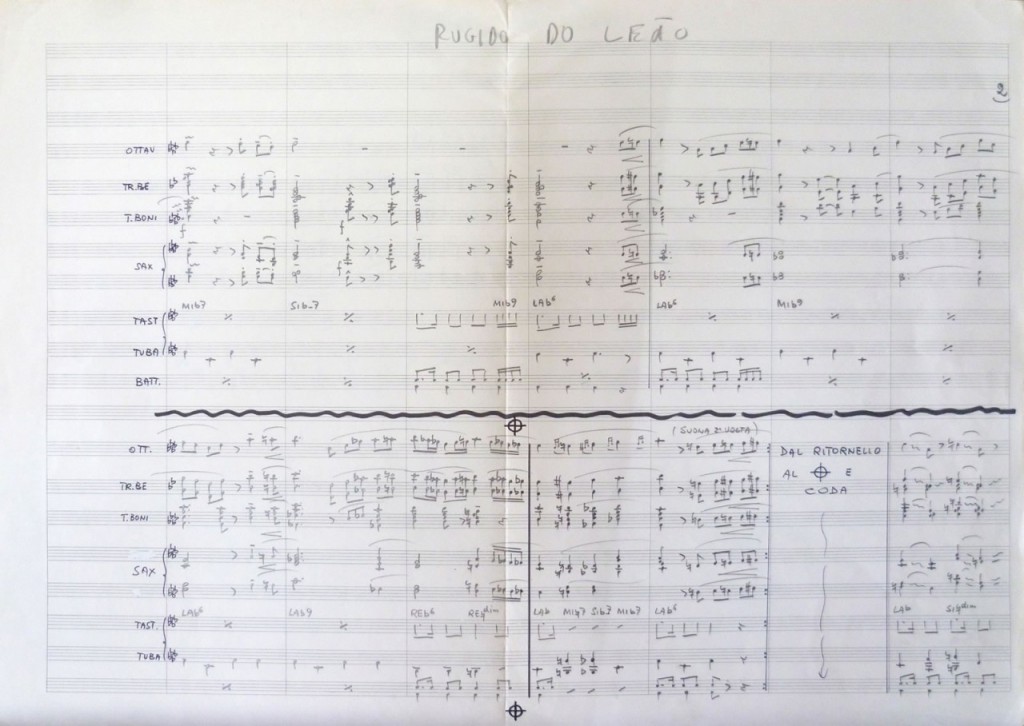 RUGIDO DO LEÃO
2
OTTAV
TR.BE
T.BONI
SAX
MIb7 SIb-7 MIb9 LAb6 LAb6 MIb9
TAST
TUBA
BATT.
(SUONA 2ª VOLTA)
OTT.
DAL RITORNELLO
AL E
CODA
TR.BE
T.BONI
f f f
SAX
LAb6 LAb9 REb6 REdim LAb MIb7 SIb7 MIb7 LAb6 LAb SIdim
TAST.
TUBA